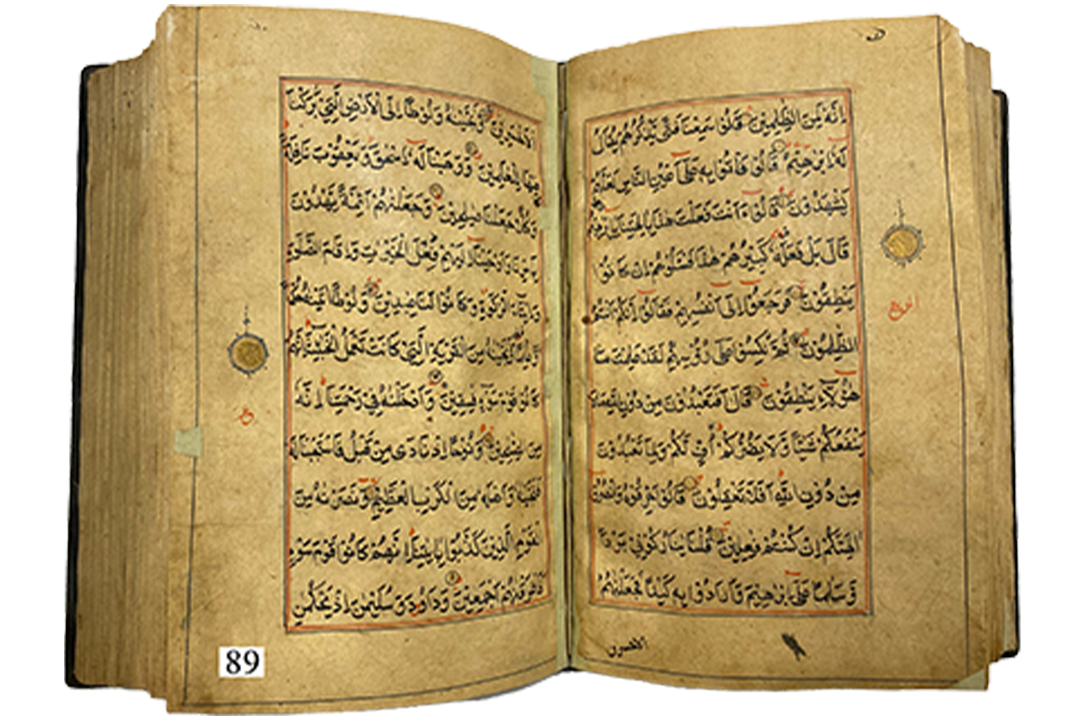 اِنَّهٗ لَمِنَ الظّٰلِمِيْنَ قَالُوْا سَمِعْنَا فَتًى يَّذْكُرُهُمْ يُقَالُ
لَهٗ اِبْرٰهِيْمُ قَالُوْا فَاْتُوْا بِهٖ عَلٰٓى اَعْيُنِ النَّاسِ لَعَلَّهُمْ
يَشْهَدُوْنَ قَالُوْا ءَاَنْتَ فَعَلْتَ هٰذَا بِاٰلِهَتِنَا يٰاِبْرٰهِيْمُ
قَالَ بَلْ فَعَلَهٗ كَبِيْرُهُمْ هٰذَا فَسْـَٔلُوْهُمْ اِنْ كَانُوْا
يَنْطِقُوْنَ فَرَجَعُوْٓا اِلٰٓى اَنْفُسِهِمْ فَقَالُوْٓا اِنَّكُمْ اَنْتُمُ
الظّٰلِمُوْنَ ثُمَّ نُكِسُوْا عَلٰى رُءُوْسِهِمْ لَقَدْ عَلِمْتَ مَا
هٰٓؤُلَآءِ يَنْطِقُوْنَ قَالَ اَفَتَعْبُدُوْنَ مِنْ دُوْنِ اللّٰهِ مَا
يَنْفَعُكُمْ شَيْـًٔا وَّلَا يَضُرُّكُمْ اُفٍّ لَّكُمْ وَلِمَا تَعْبُدُوْنَ
مِنْ دُوْنِ اللّٰهِ اَفَلَا تَعْقِلُوْنَ قَالُوْا حَرِّقُوْهُ وَانْصُرُوْٓا
اٰلِهَتَكُمْ اِنْ كُنْتُمْ فٰعِلِيْنَ قُلْنَا يٰنَارُ كُوْنِيْ بَرْدًا
وَّسَلٰمًا عَلٰٓى اِبْرٰهِيْمَ وَاَرَادُوْا بِهٖ كَيْدًا فَجَعَلْنٰهُمُ
الاخسرين
الْاَخْسَرِيْنَ وَنَجَّيْنٰهُ وَلُوْطًا اِلَى الْاَرْضِ الَّتِيْ بٰرَكْنَا
فِيْهَا لِلْعٰلَمِيْنَ وَوَهَبْنَا لَهٗٓ اِسْحٰقَ وَيَعْقُوْبَ نَافِلَةً
وَكُلًّا جَعَلْنَا صٰلِحِيْنَ وَجَعَلْنٰهُمْ اَئِمَّةً يَّهْدُوْنَ
بِاَمْرِنَا وَاَوْحَيْنَآ اِلَيْهِمْ فِعْلَ الْخَيْرٰتِ وَاِقَامَ الصَّلٰوةِ
وَاِيْتَآءَ الزَّكٰوةِ وَكَانُوْا لَنَا عٰبِدِيْنَ وَلُوْطًا اٰتَيْنٰهُ حُكْمًا
وَّعِلْمًا وَّنَجَّيْنٰهُ مِنَ الْقَرْيَةِ الَّتِيْ كَانَتْ تَعْمَلُ الْخَبٰٓئِثَ اِنَّهُمْ
كَانُوْا قَوْمَ سَوْءٍ فٰسِقِيْنَ وَاَدْخَلْنٰهُ فِيْ رَحْمَتِنَا اِنَّهٗ
مِنَ الصّٰلِحِيْنَ وَنُوْحًا اِذْ نَادٰى مِنْ قَبْلُ فَاسْتَجَبْنَا لَهٗ
فَنَجَّيْنٰهُ وَاَهْلَهٗ مِنَ الْكَرْبِ الْعَظِيْمِ وَنَصَرْنٰهُ مِنَ
الْقَوْمِ الَّذِيْنَ كَذَّبُوْا بِاٰيٰتِنَا اِنَّهُمْ كَانُوْا قَوْمَ سَوْءٍ
فَاَغْرَقْنٰهُمْ اَجْمَعِيْنَ وَدَاوٗدَ وَسُلَيْمٰنَ اِذْ يَحْكُمٰنِ
89